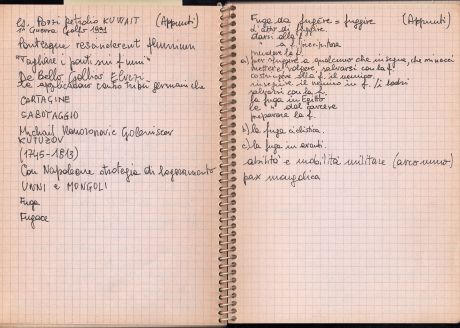 es. Pozzi petrolio KUWAIT (Appunti)
in Guerra Golfo 1991
Pontesque rescinderent fluminum
"Tagliare i ponti sui fiumi"
De Bello Gallico Elvezi.
Le applicavano contro tribù germaniche
CARTAGINE
SABOTAGGIO
Michail Ilarionovic Goleniscev
KUTUZOV
(1745-1813)
Con Napoleone strategia di logoramento
UNNI e MONGOLI
Fuga
Fugace
Fuga da fugĕre = fuggire (Appunti)
d'atto di fuggire.
darsi alla f.
" a f. precipitosa
prendere la f.
a) per sfuggire a qualcuno che insegue, che minacci
mettere, volgere, salvarsi con la f.
costringere alla f. il nemico.
inseguire il nemico in f. i ladri
salvarsi con la f.
la fuga in Egitto
le " dal carcere
preparare la f.
b) la fuga ciclistica.
c) la fuga in avanti.
abilità e mobilità militare (arco mino)
pax mongolica